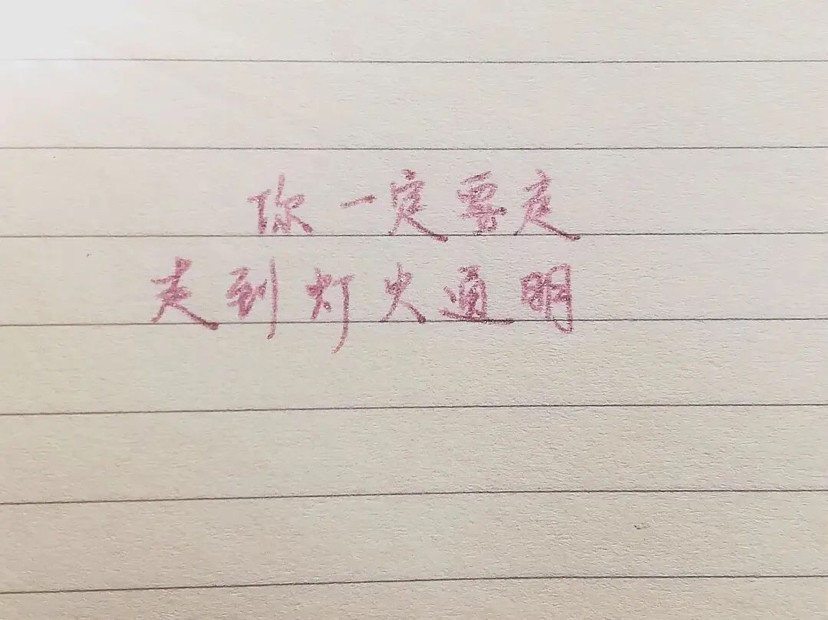 你一定要走
走到灯火通明